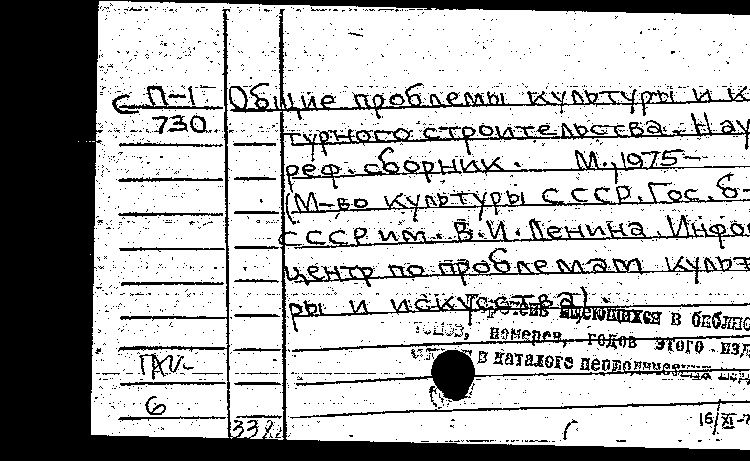 С П-1 Общие проблемы культуры и к
730 турного строительства. Нау
реф. сборник. М., 1975-
(М-во культуры СССР. Гос. б-
СССР им. В.И. Ленина. Инфо
центр по проблемам культ
ры и искусства).
имеющихся в библио
томов, номеров, годов этого изд
в каталоге периодических
ГАУ-
6
338
16/XI-